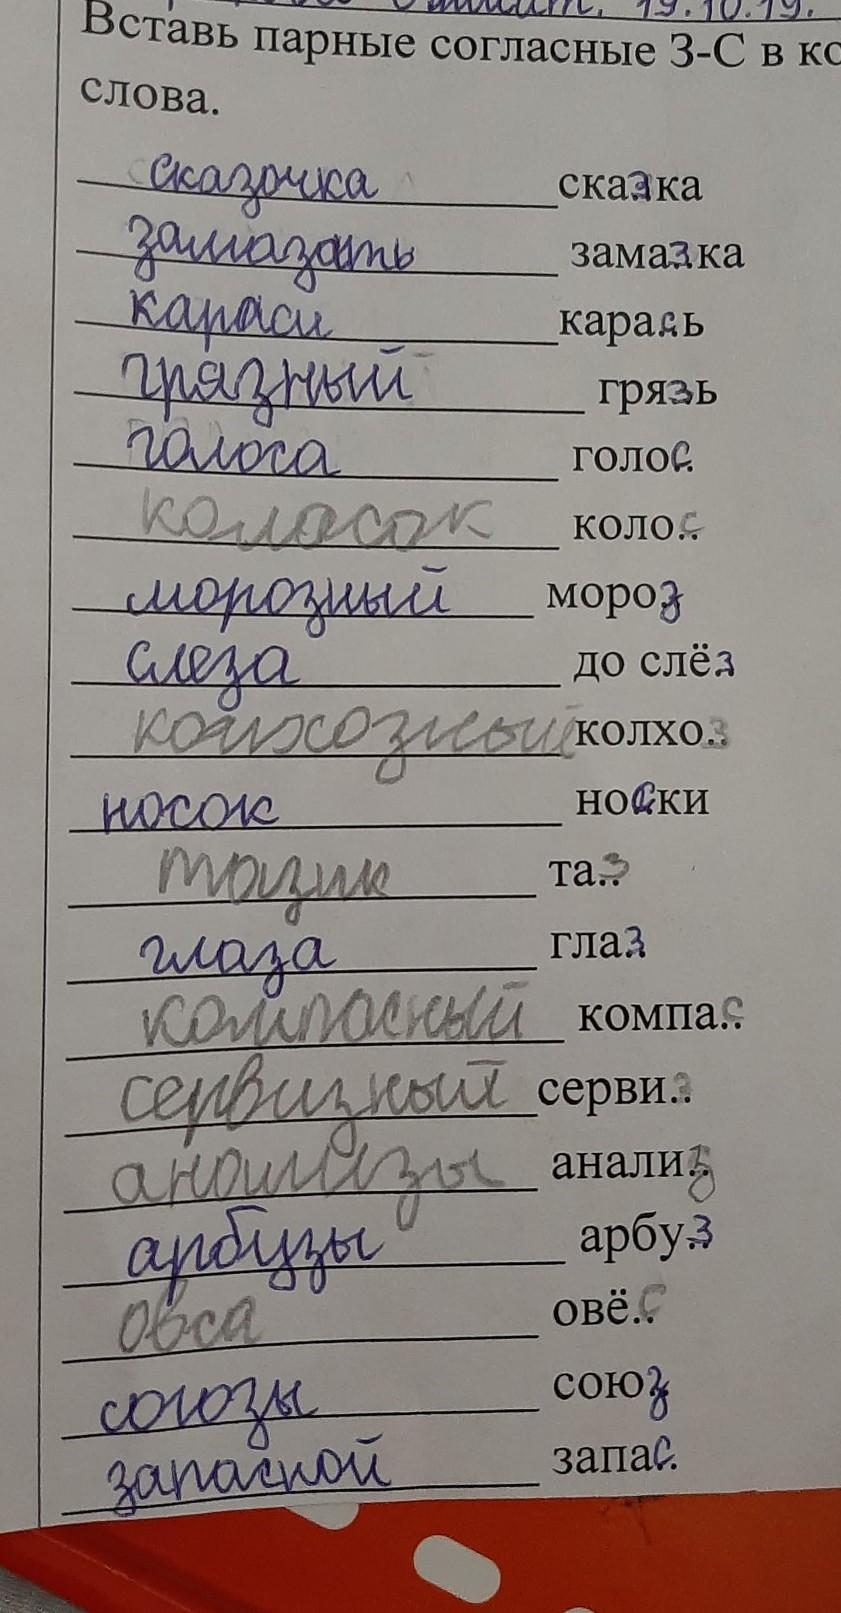 19.10.19.
Вставь парные согласные З-С в ко
слова.
сказочка сказка
замазать замазка
караси карась
грязный грязь
голоса голос
колосок колос
морозный мороз
слеза до слёз
колхозный колхоз
носок носки
тазик таз
глаза глаз
компасный компас
сервизный сервиз
анализы анализ
арбузы арбуз
овса овёс
союзы союз
запасной запас